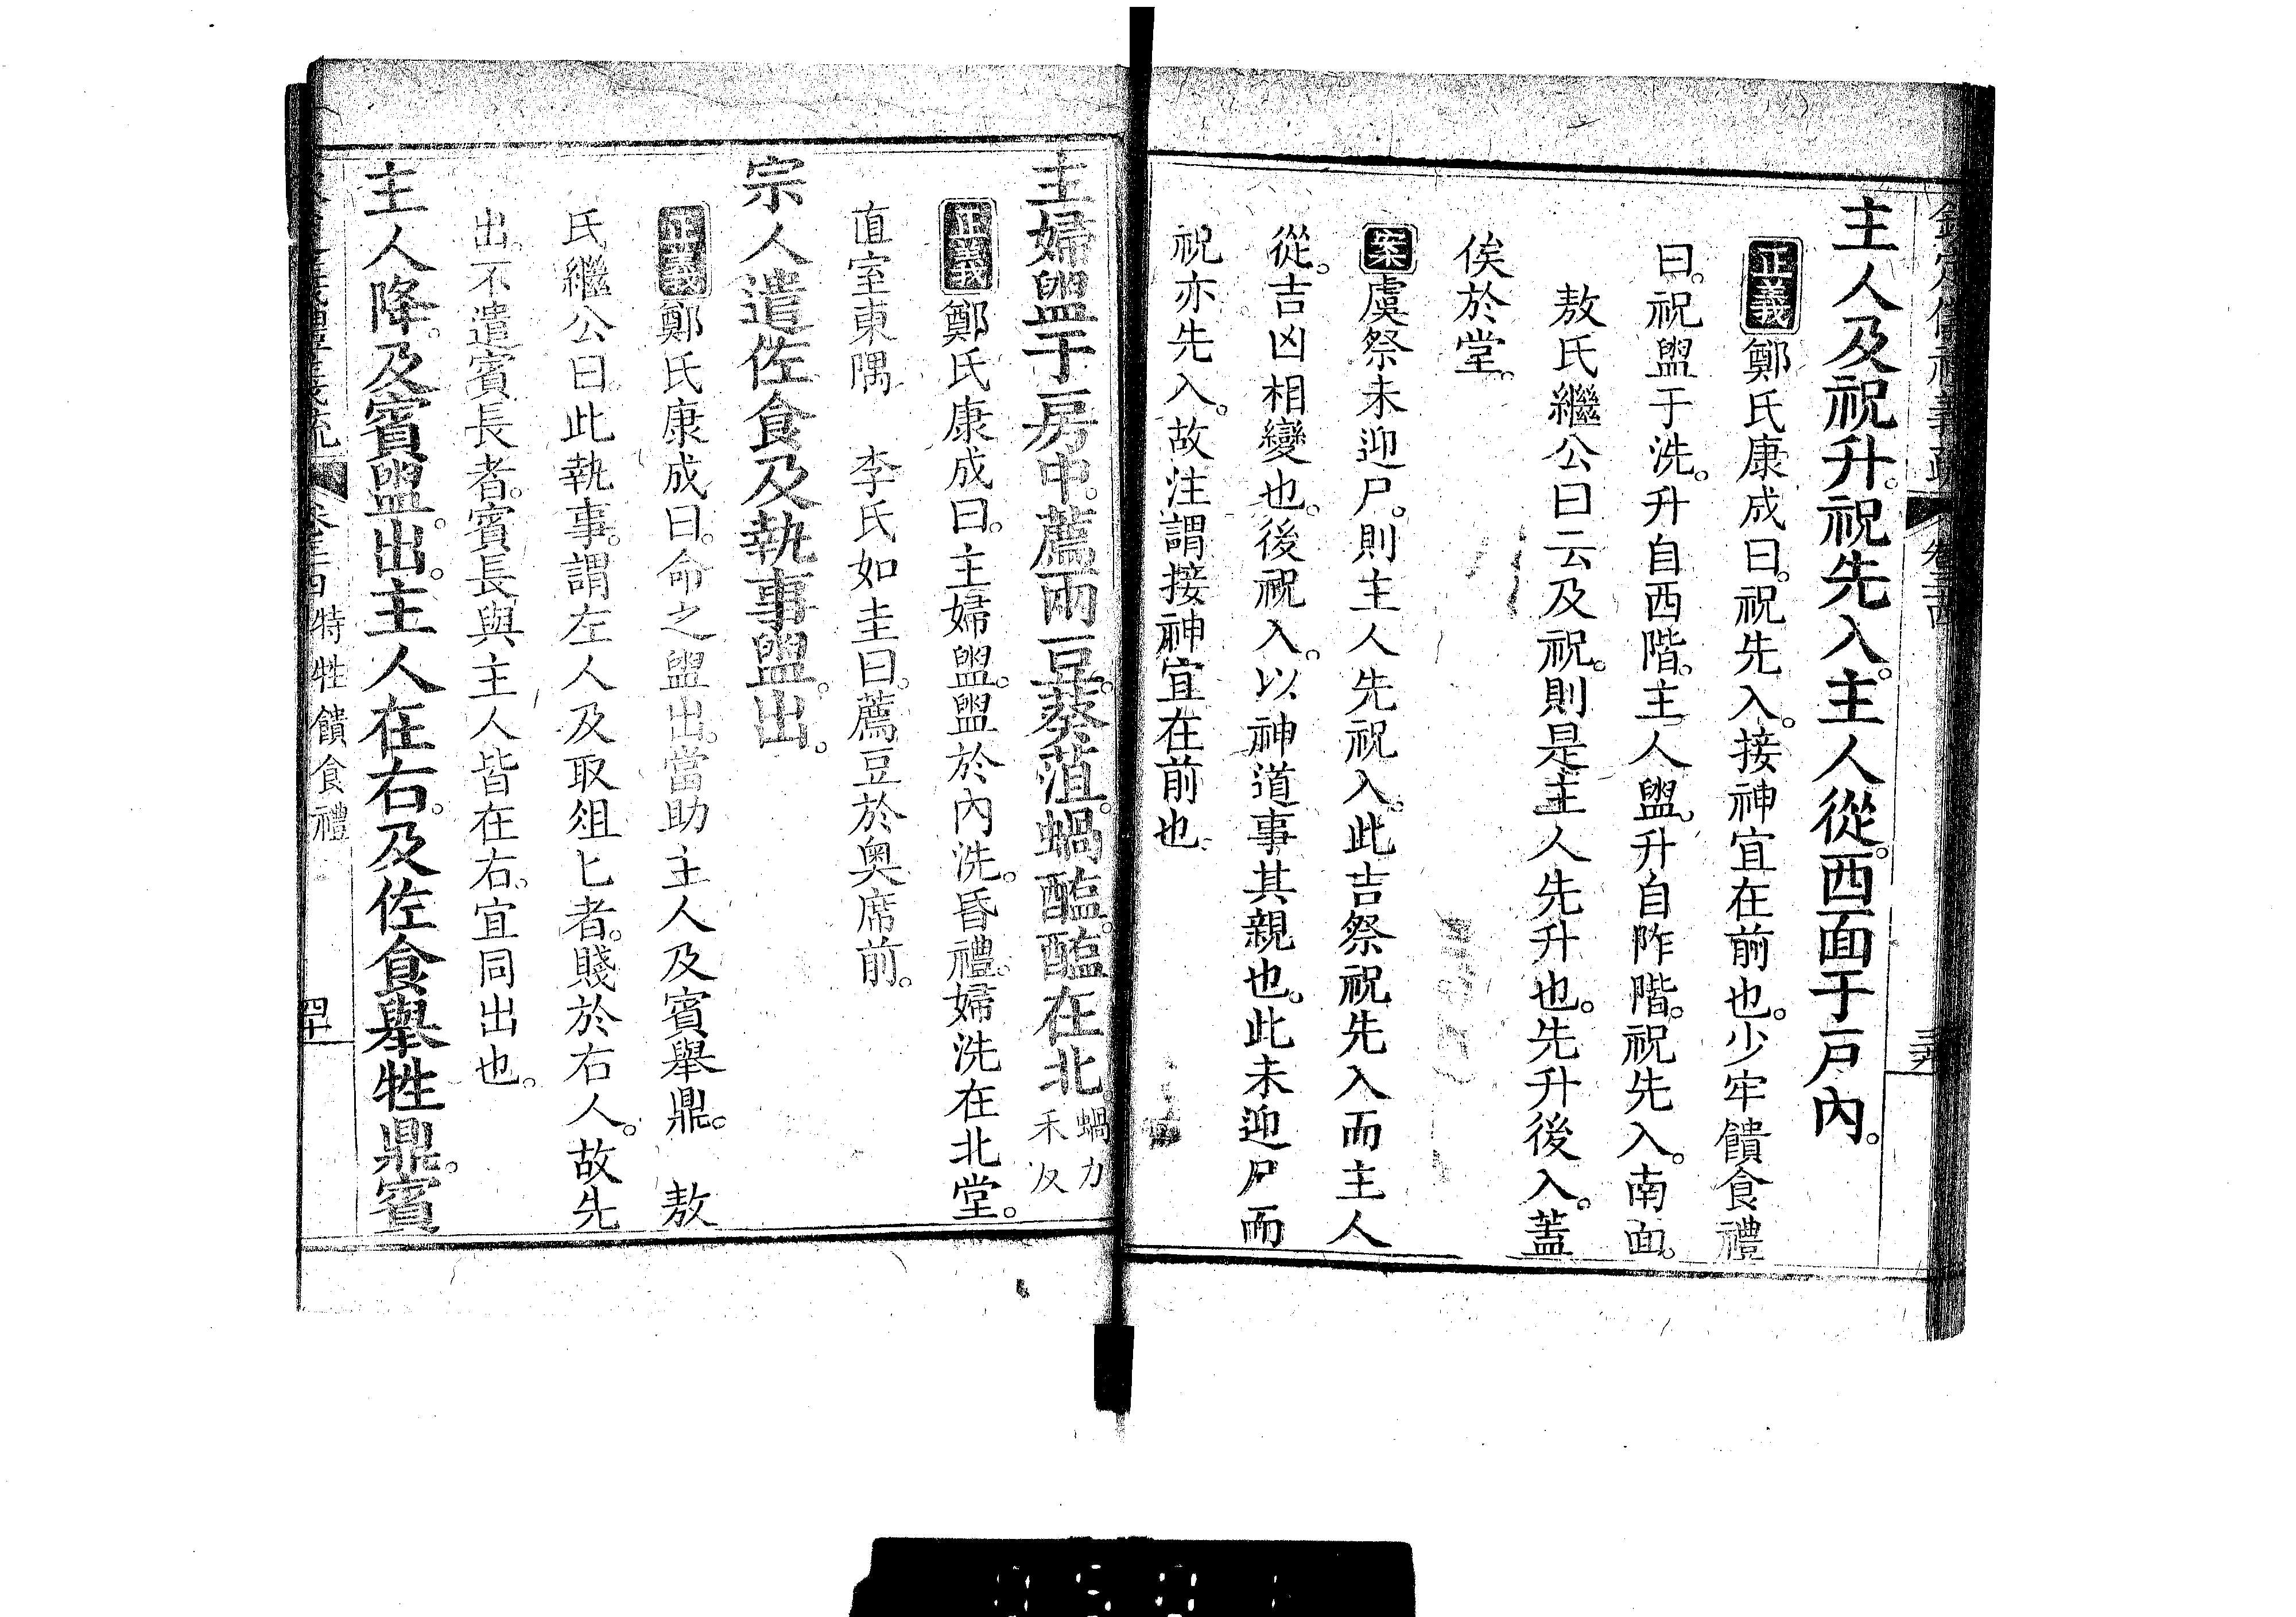 主人及祝升。祝先入。主人從。西面于戶內。
正義鄭氏康成曰。祝先入。接神宜在前也。少牢饋食禮
曰。祝盥于洗。升自西階。主人盥。升自阼階。祝先入。南面。
敖氏繼公曰云及祝。則是主人先升也。先升後入。蓋
俟於堂。
案虞祭未迎尸。則主人先祝入。此吉祭祝先入而主人
從。吉凶相變也。後祝入。以神道事其親也。此未迎尸而
祝亦先入。故注謂接神宜在前也
主婦盥于房中。薦兩豆。葵菹。蝸醢。醢在北。蝸力禾反
正義鄭氏康成曰。主婦盥。盥於內洗。昏禮。婦洗在北堂。
直室東隅 李氏如圭曰。薦豆於奧席前。
宗人遣佐食及執事盥。出。
正義鄭氏康成曰。命之盥出。當助主人及賓舉鼎。 敖
氏繼公曰。此執事。謂左人及取俎匕者。賤於右人。故先
出。不遣賓長者。賓長與主人皆在右。宜同出也。
主人降。及賓盥。出。主人在右。及佐食舉牲鼎。賓
特牲饋食禮